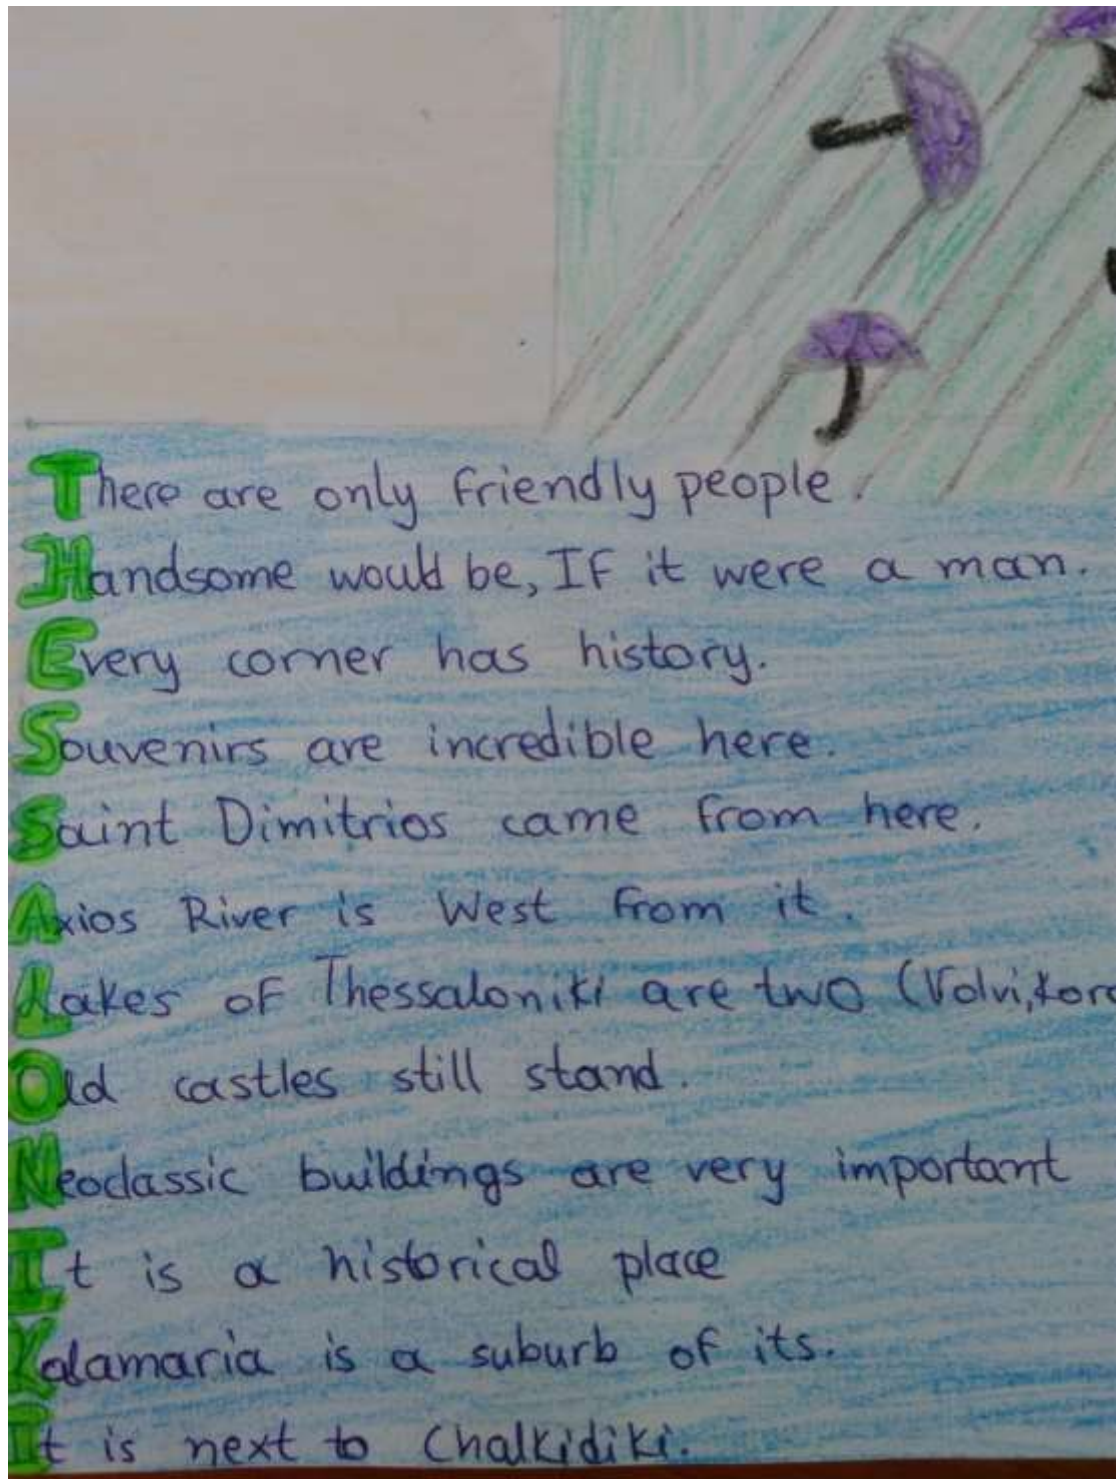 There are only friendly people.
Handsome would be, If it were a man.
Every corner has history.
Souvenirs are incredible here.
Saint Dimitrios came from here.
Axios River is West from it.
Lakes of Thessaloniki are two (Volvi,
Old castles still stand.
Neoclassic buildings are very important
It is a historical place
Kalamaria is a suburb of its.
It is next to Chalkidiki.